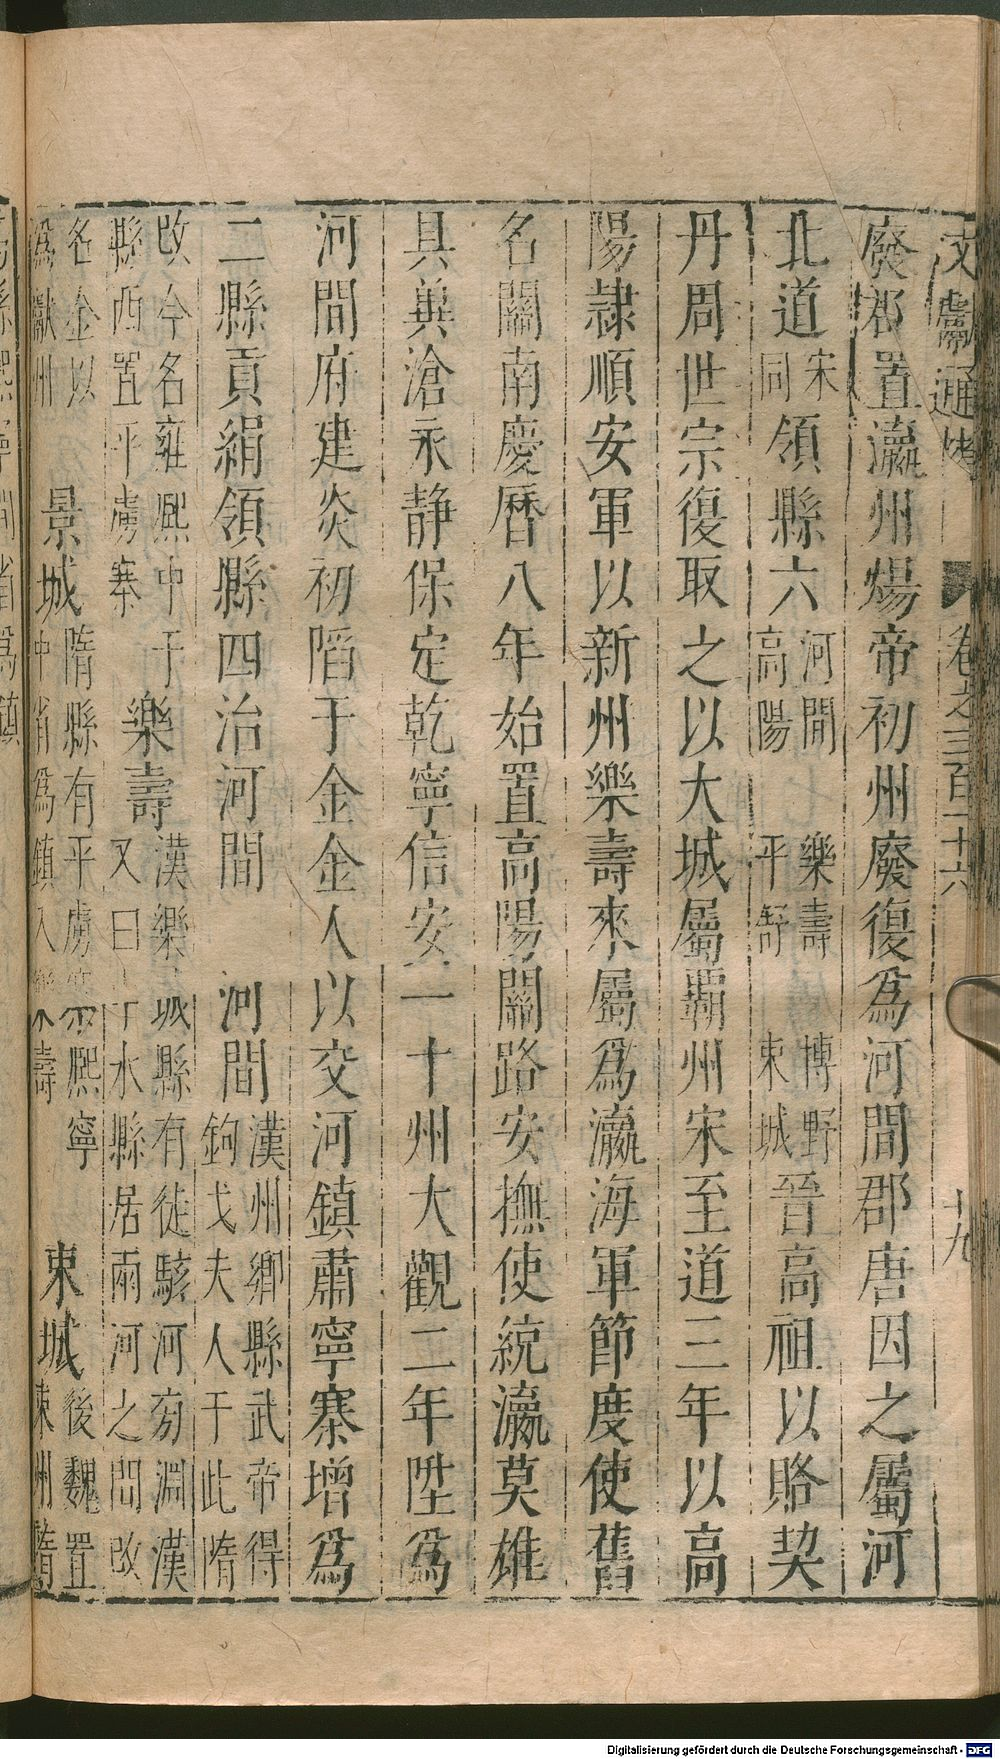 文獻通考 卷之三百十六 十九
廢郡置瀛州煬帝初州廢復爲河間郡唐因之屬河
北道宋同領縣六河間高陽樂壽平舒博野束城晉高祖以賂契
丹周世宗復取之以大城屬霸州宋至道三年以高
陽隷順安軍以新州樂壽來屬爲瀛海軍節度使舊
名關南慶曆八年始置高陽關路安撫使統瀛莫雄
具兾滄永静保定乾寧信安一十州大觀二年陞爲
河間府建炎初䧟于金金人以交河鎮肅寧寨增爲
二縣貢絹領縣四治河間 河間漢州鄉縣武帝得鉤弋夫人于此隋
改今名雍熙中于縣西置平虜寨 樂壽漢樂城縣有徒駭河夯淵漢又曰水縣居兩河之間改
名金以爲獻州 景城隋縣有平虜寨熙寧中省爲鎮入樂壽 束城後魏置束州隋